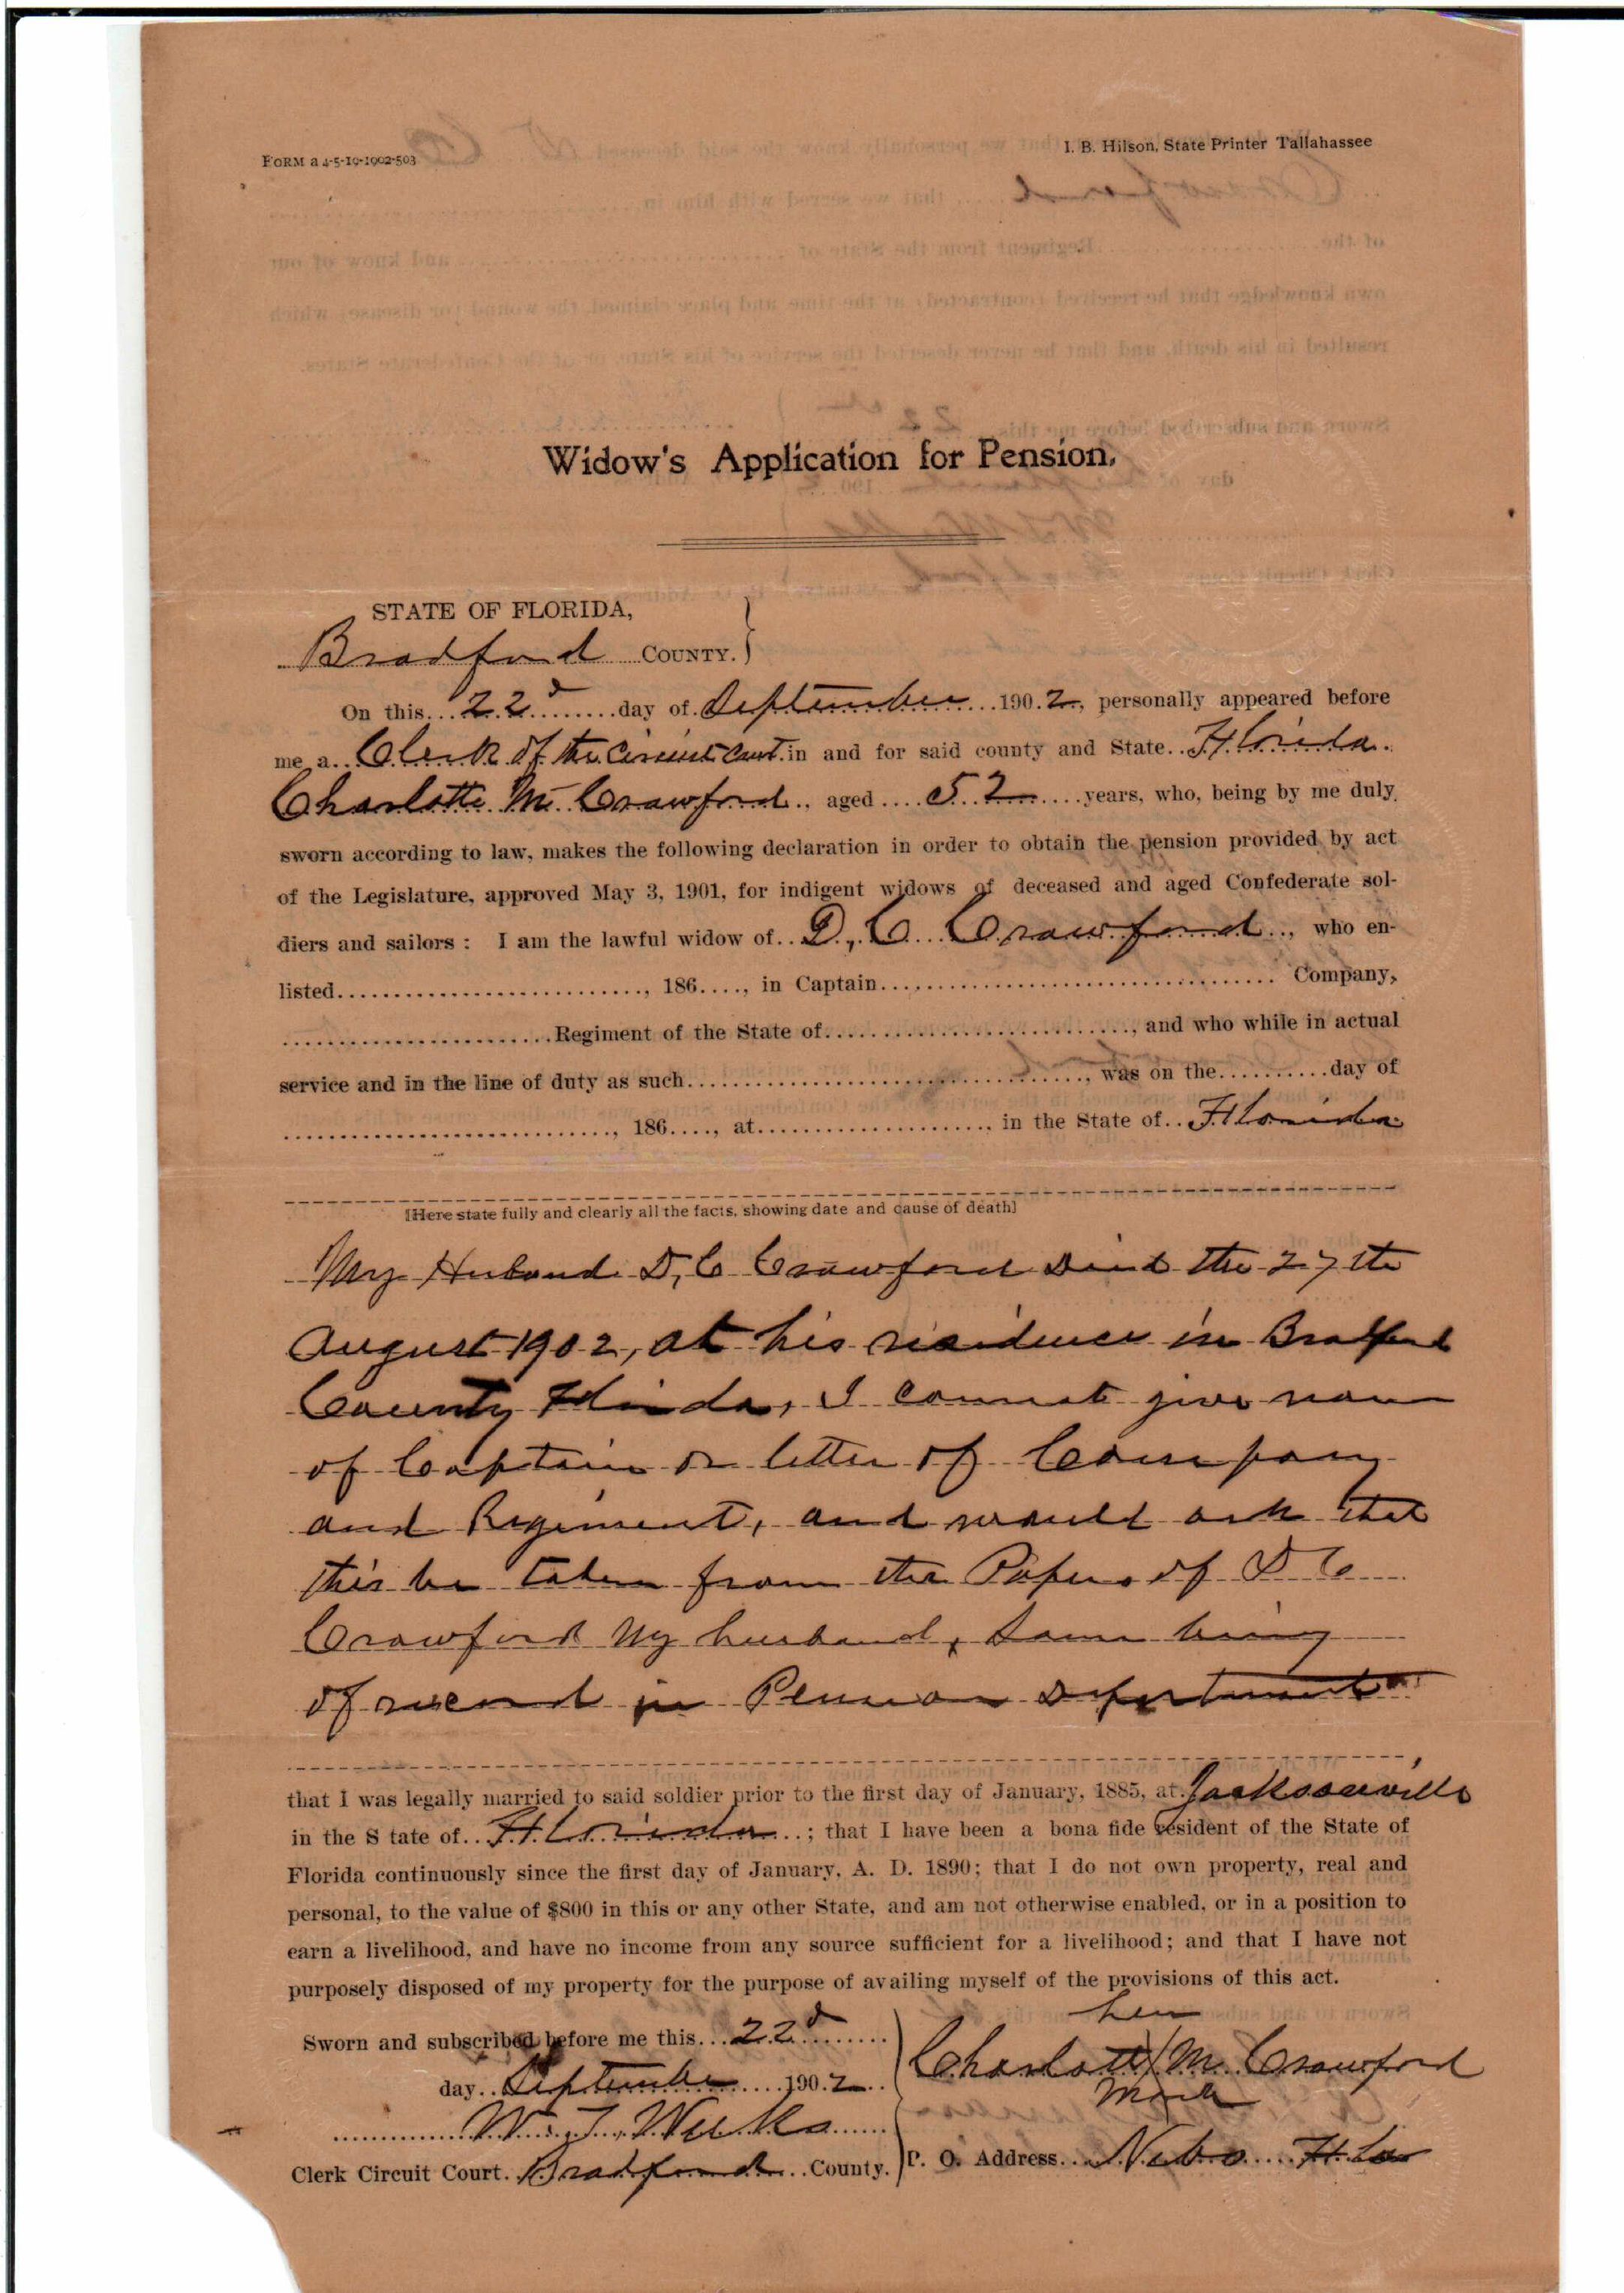 FORM a 4-5-19-1902-503
I. B. Hilson, State Printer Tallahassee
Widow's Application for Pension.
STATE OF FLORIDA,
Bradford COUNTY.
On this 22d day of September 1902, personally appeared before
me a Clerk of the Circuit Court in and for said county and State Florida
Charlotte M. Crawford, aged 52 years, who, being by me duly
sworn according to law, makes the following declaration in order to obtain the pension provided by act
of the Legislature, approved May 3, 1901, for indigent widows of deceased and aged Confederate sol-
diers and sailors: I am the lawful widow of D, C Crawford, who en-
listed..........................., 186...., in Captain................................... Company,
........................Regiment of the State of..........................., and who while in actual
service and in the line of duty as such..................................., was on the..........day of
............................., 186...., at..................... in the State of Florida
[Here state fully and clearly all the facts, showing date and cause of death]
My Husband D, C Crawford Died the 27th
August 1902, at his residence in Bradford
County Florida, I cannot give name
of Captain or letter of Company
and Regiment, and would ask that
this be taken from the Papers of D C
Crawford My husband, Same being
of record in Pension Department
that I was legally married to said soldier prior to the first day of January, 1885, at Jacksonville
in the S tate of Florida; that I have been a bona fide resident of the State of
Florida continuously since the first day of January, A. D. 1890; that I do not own property, real and
personal, to the value of $800 in this or any other State, and am not otherwise enabled, or in a position to
earn a livelihood, and have no income from any source sufficient for a livelihood; and that I have not
purposely disposed of my property for the purpose of availing myself of the provisions of this act.
Sworn and subscribed before me this 22d
day September 1902
her
Charlotte X M. Crawford
Mark
W. T. Weeks
Clerk Circuit Court. Bradford County.
P. O. Address Nebo Fla